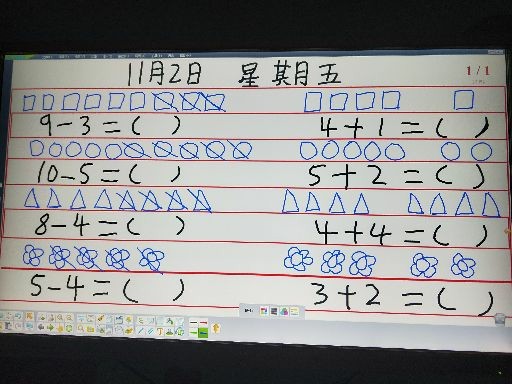 11月2日 星期五
1/1
9-3=( ) 4+1=( )
10-5=( ) 5+2=( )
8-4=( ) 4+4=( )
5-4=( ) 3+2=( )